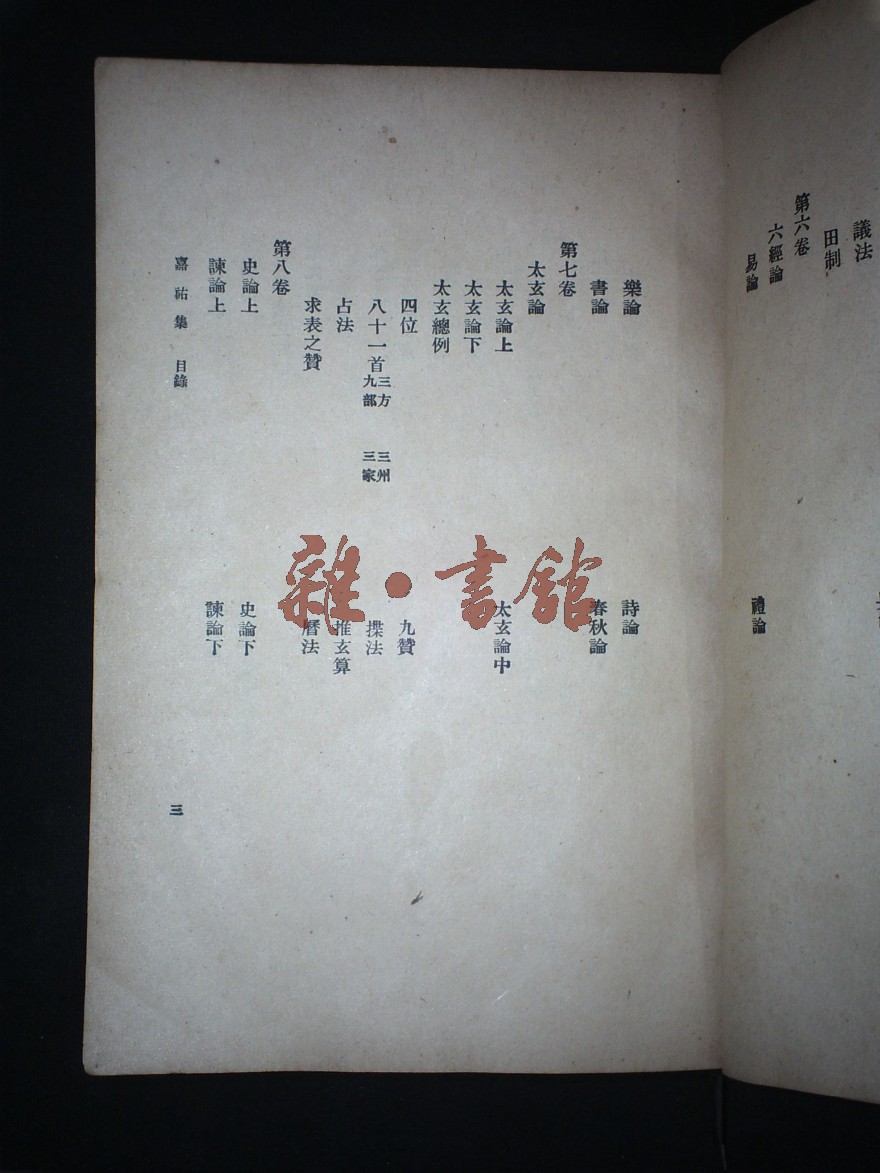 議法
田制
第六卷
六經論
易論
禮論
樂論
詩論
書論
春秋論
第七卷
太玄論
太玄論上
太玄論中
太玄論下
太玄總例
四位
九贊
八十一首三方 三州
九部 三家
揲法
占法
推玄算
求表之贊
曆法
第八卷
史論上
史論下
諫論上
諫論下
嘉祐集 目錄
三
雜·書館